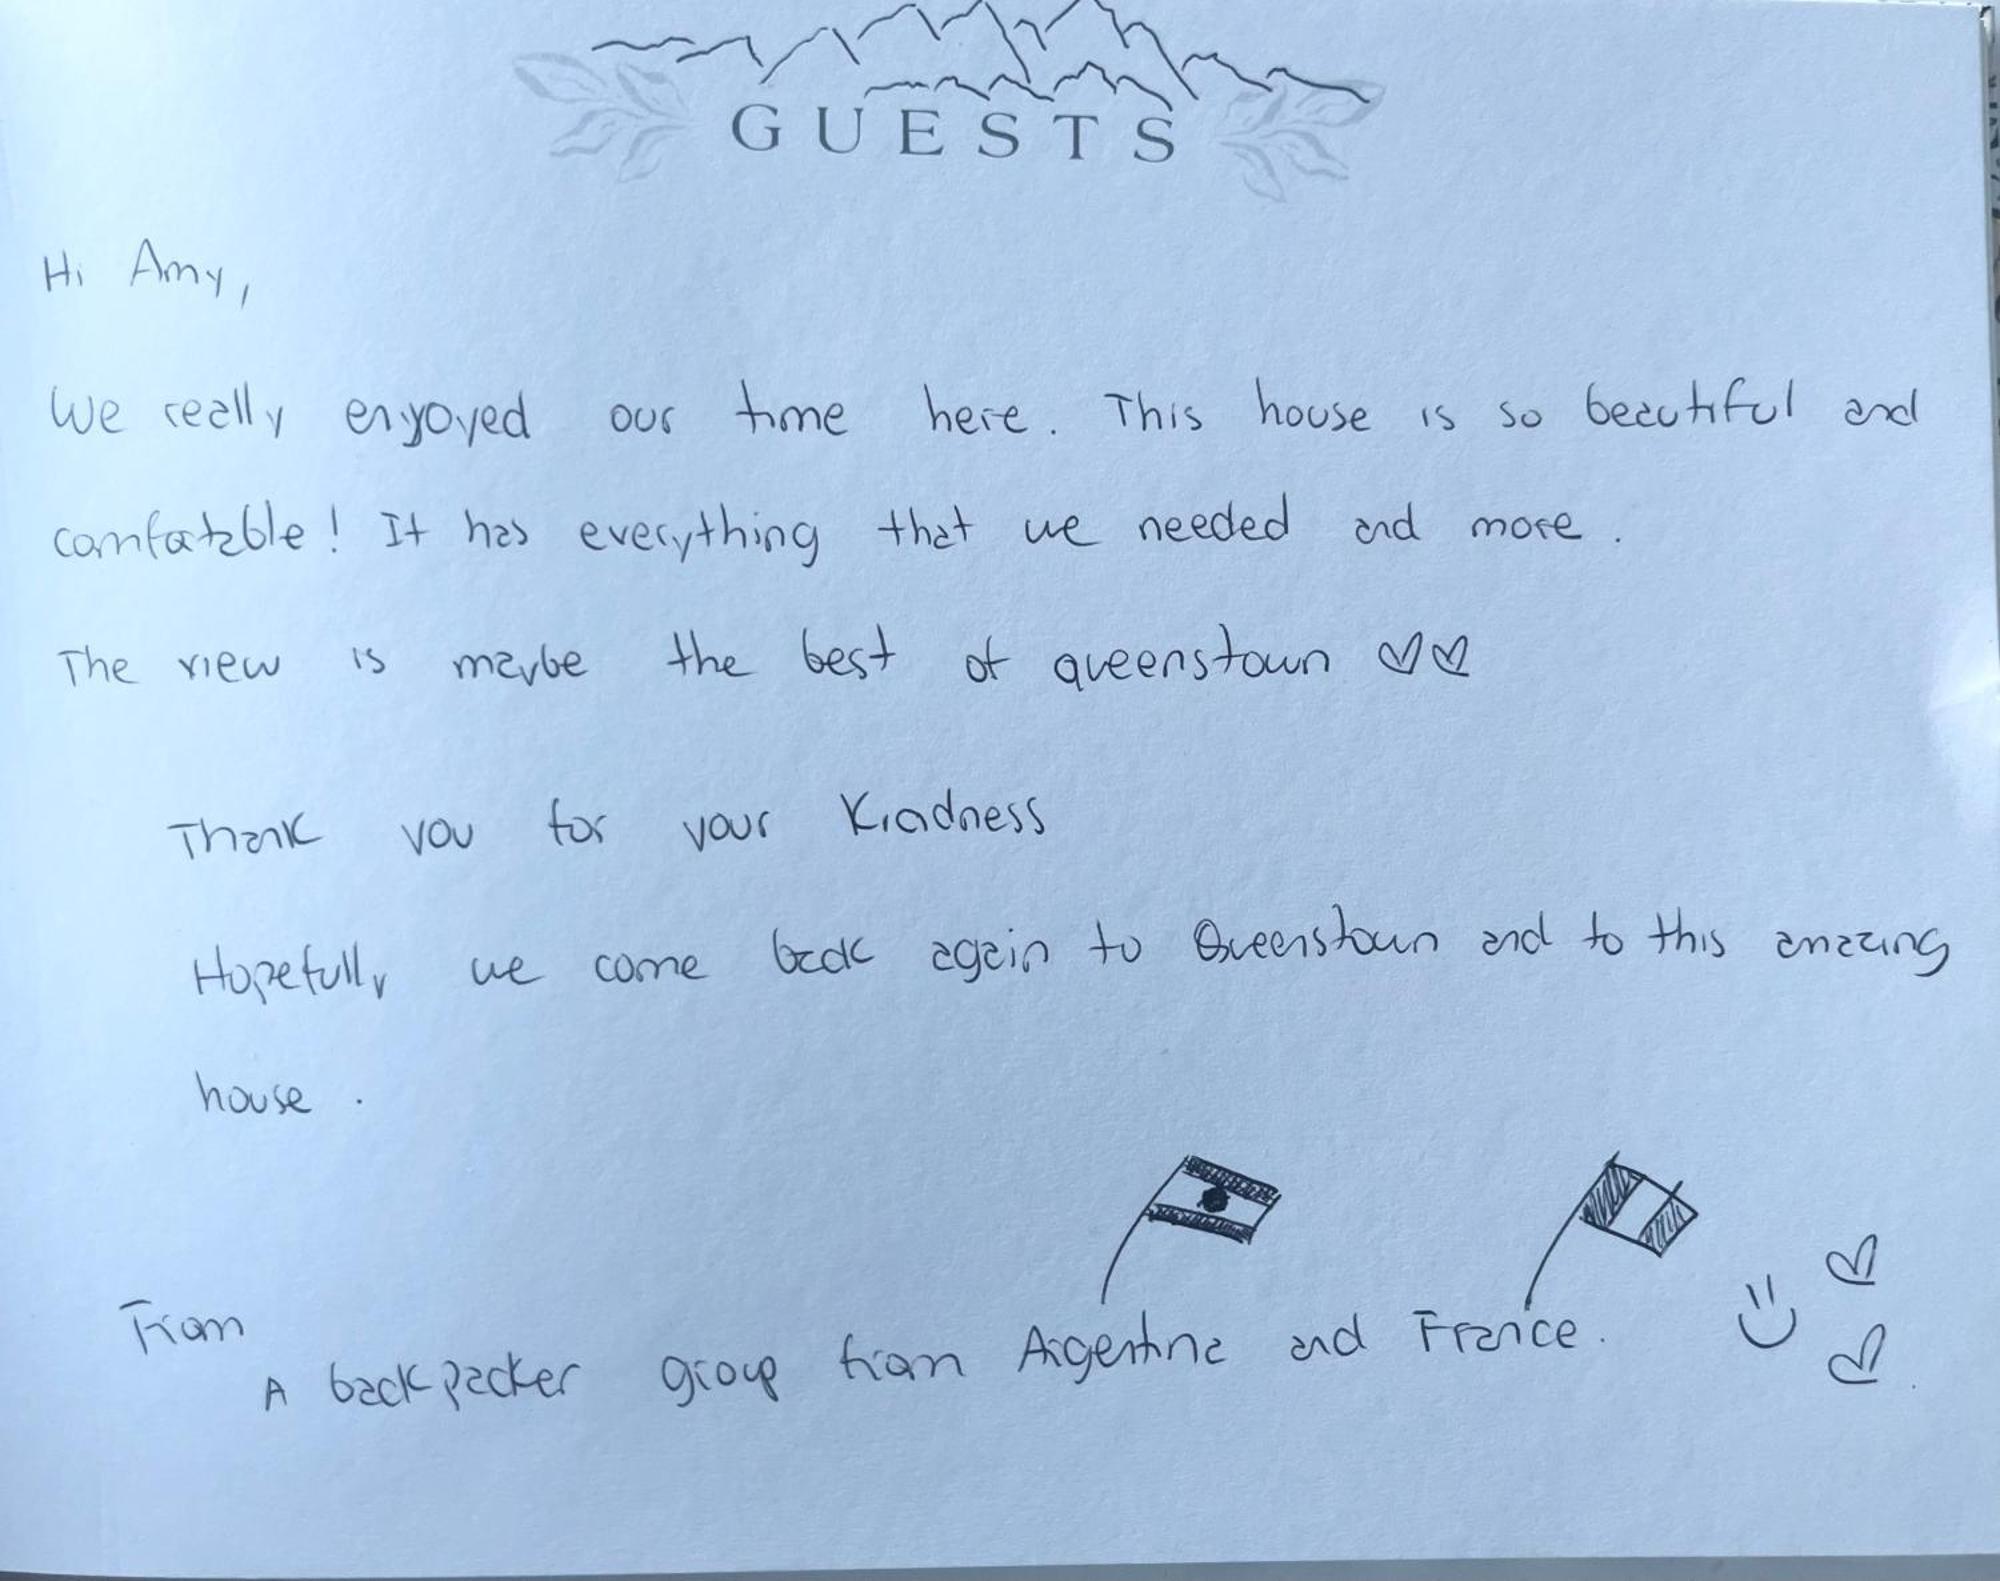 GUESTS
Hi Amy,
We really enjoyed our time here. This house is so beautiful and
comfortable! It has everything that we needed and more.
The view is maybe the best of queenstown ♡♡
Thank you for your Kindness
Hopefully we come back again to Queenstown and to this amazing
house.
From
A backpacker group from Argentina and France.